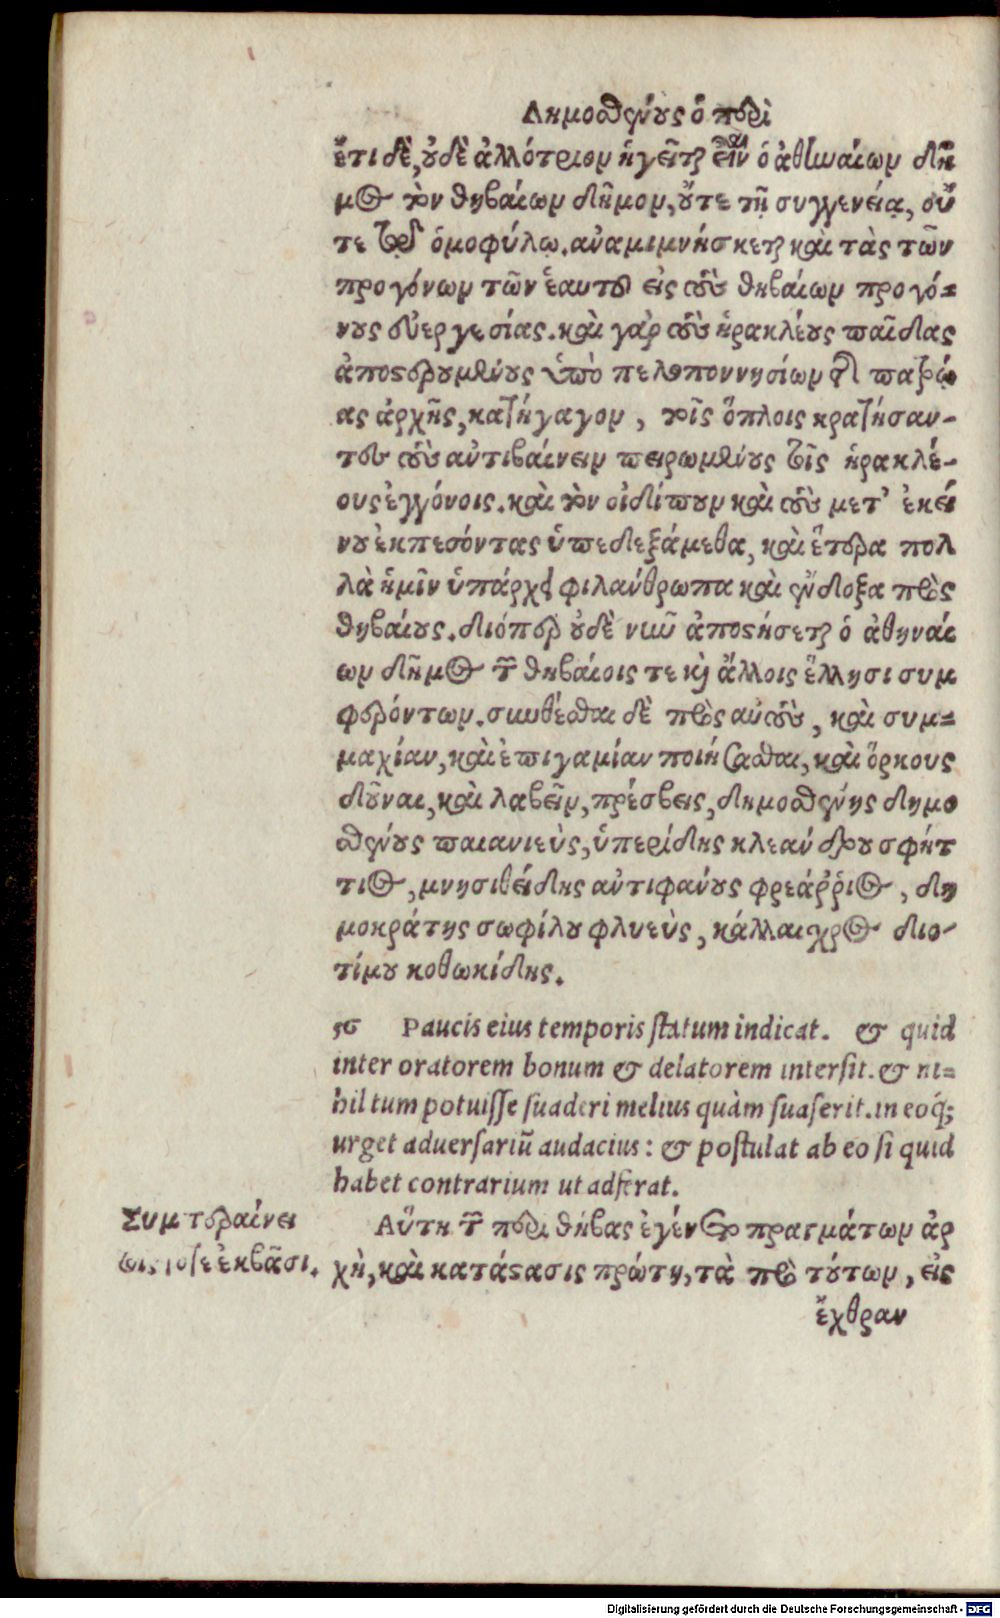 Δημοσθένους ὁ περὶ
ἔτι δὲ, οὐδὲ ἀλλότριον ἡγεῖται εἶναι ὁ ἀθηναίων δῆ
μος τὸν θηβαίων δῆμον, οὔτε τῇ συγγενείᾳ, οὔ
τε τῷ ὁμοφύλῳ. ἀναμιμνήσκεται καὶ τὰς τῶν
προγόνων τῶν ἑαυτοῦ εἰς τοὺς θηβαίων προγό=
νους εὐεργεσίας. καὶ γὰρ τοὺς ἡρακλέους παῖδας
ἀποστερουμένους ὑπὸ πελοποννησίων τῆς πατρῴ
ας ἀρχῆς, κατήγαγον, τοῖς ὅπλοις κρατήσαν-
τες τοὺς ἀντιβαίνειν πειρωμένους τοῖς ἡρακλέ-
ους ἐγγόνοις. καὶ τὸν οἰδίπουν καὶ τοὺς μετ' ἐκεί
νου ἐκπεσόντας ὑπεδεξάμεθα, καὶ ἕτερα πολ
λὰ ἡμῖν ὑπάρχει φιλάνθρωπα καὶ ἔνδοξα πρὸς
θηβαίους. διόπερ οὐδὲ νῦν ἀποστήσεται ὁ ἀθηναί
ων δῆμος τῶν θηβαίοις τε καὶ ἄλλοις ἕλλησι συμ
φερόντων. συνθέσθαι δὲ πρὸς αὐτοὺς, καὶ συμ=
μαχίαν, καὶ ἐπιγαμίαν ποιήσασθαι, καὶ ὅρκους
δοῦναι, καὶ λαβεῖν, πρέσβεις, δημοσθένης δημο
σθένους παιανιεὺς, ὑπερίδης κλεάνδρου σφήτ
τιος, μνησιθείδης ἀντιφάνους φρεάῤῥιος, δη
μοκράτης σωφίλου φλυεὺς, κάλλαισχρος διο-
τίμου κοθωκίδης.
56 Paucis eius temporis statum indicat. & quid
inter oratorem bonum & delatorem intersit. & ni=
hil tum potuisse suaderi melius quàm suaserit. in eoq́;
urget aduersariũ audacius: & postulat ab eo si quid
habet contrarium ut adferat.
Συμπεραίνει
Αὕτη τῶν περὶ θήβας ἐγένετο πραγμάτων ἀρ
ἐκβᾶσι.
χὴ, καὶ κατάστασις πρώτη, τὰ πρὸ τούτων, εἰς
ἔχθραν
Digitalisierung gefördert durch die Deutsche Forschungsgemeinschaft - DFG